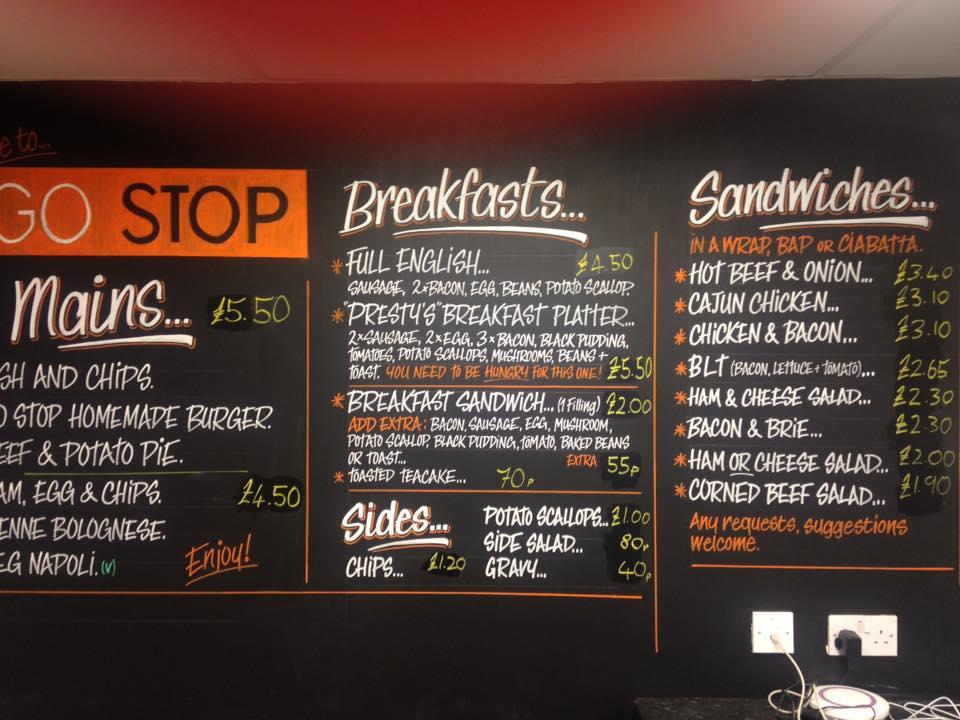 to...
GO STOP
Mains... £5.50
AND CHIPS.
STOP HOMEMADE BURGER.
& POTATO PIE.
EGG & CHIPS. £4.50
BOLOGNESE.
NAPOLI. (V)
Enjoy!
Breakfasts...
* FULL ENGLISH... £4.50
SAUSAGE, 2xBACON, EGG, BEANS, POTATO SCALLOP.
* "PRESTY'S" BREAKFAST PLATTER...
2xSAUSAGE, 2xEGG, 3xBACON, BLACK PUDDING,
TOMATOES, POTATO SCALLOPS, MUSHROOMS, BEANS +
TOAST. YOU NEED TO BE HUNGRY FOR THIS ONE! £5.50
* BREAKFAST SANDWICH... (1 Filling) £2.00
ADD EXTRA: BACON, SAUSAGE, EGG, MUSHROOM,
POTATO SCALLOP, BLACK PUDDING, TOMATO, BAKED BEANS
OR TOAST... EXTRA 55p
* TOASTED TEACAKE... 70p
Sides...
CHIPS... £1.20
POTATO SCALLOPS... £1.00
SIDE SALAD... 80p
GRAVY... 40p
Sandwiches...
IN A WRAP, BAP OR CIABATTA.
* HOT BEEF & ONION... £3.40
* CAJUN CHICKEN... £3.10
* CHICKEN & BACON... £3.10
* BLT (BACON, LETTUCE + TOMATO)... £2.65
* HAM & CHEESE SALAD... £2.30
* BACON & BRIE... £2.30
* HAM OR CHEESE SALAD... £2.00
* CORNED BEEF SALAD... £1.90
Any requests, suggestions
welcome.